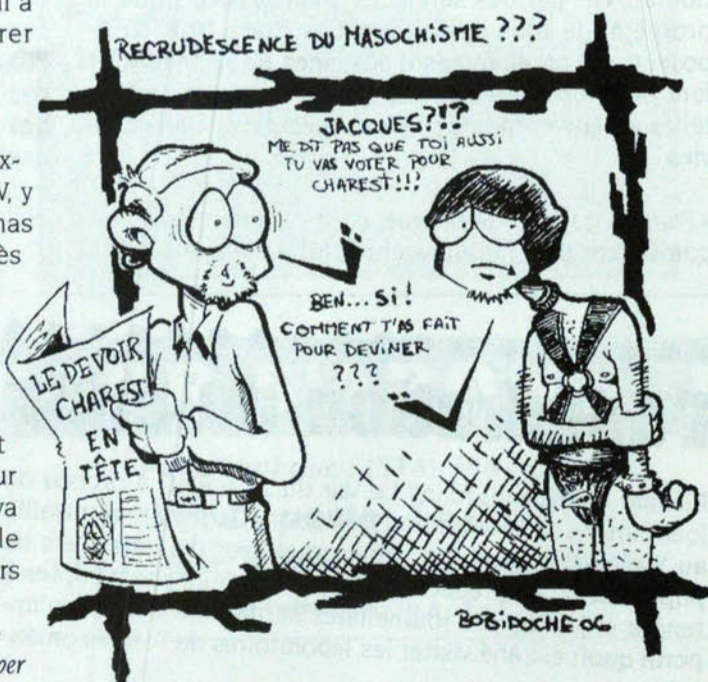 RECRUDESCENCE DU MASOCHISME ???
JACQUES?!?
ME DIT PAS QUE TOI AUSSI
TU VAS VOTER POUR
CHAREST!!!
BEN... SI!
COMMENT T'AS FAIT
POUR DEVINER
???
LE DEVOIR
CHAREST
EN
TÊTE
BOBIDOCHE-OC.
a
rer
x-
V, y
nas
ès
t
ur
va
le
rs
per